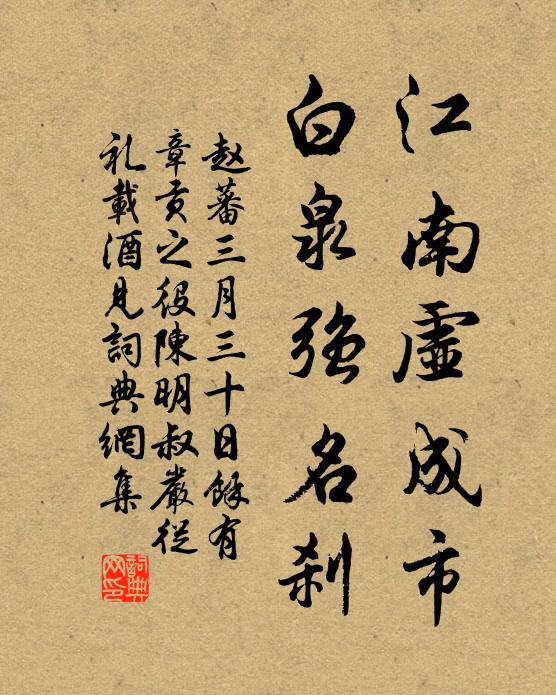 江南虛成市
白泉強名刹
赵蕃三月三十日餘有
章贡之役陳明叔嚴從
礼載酒見詞典網集
詞典
网印